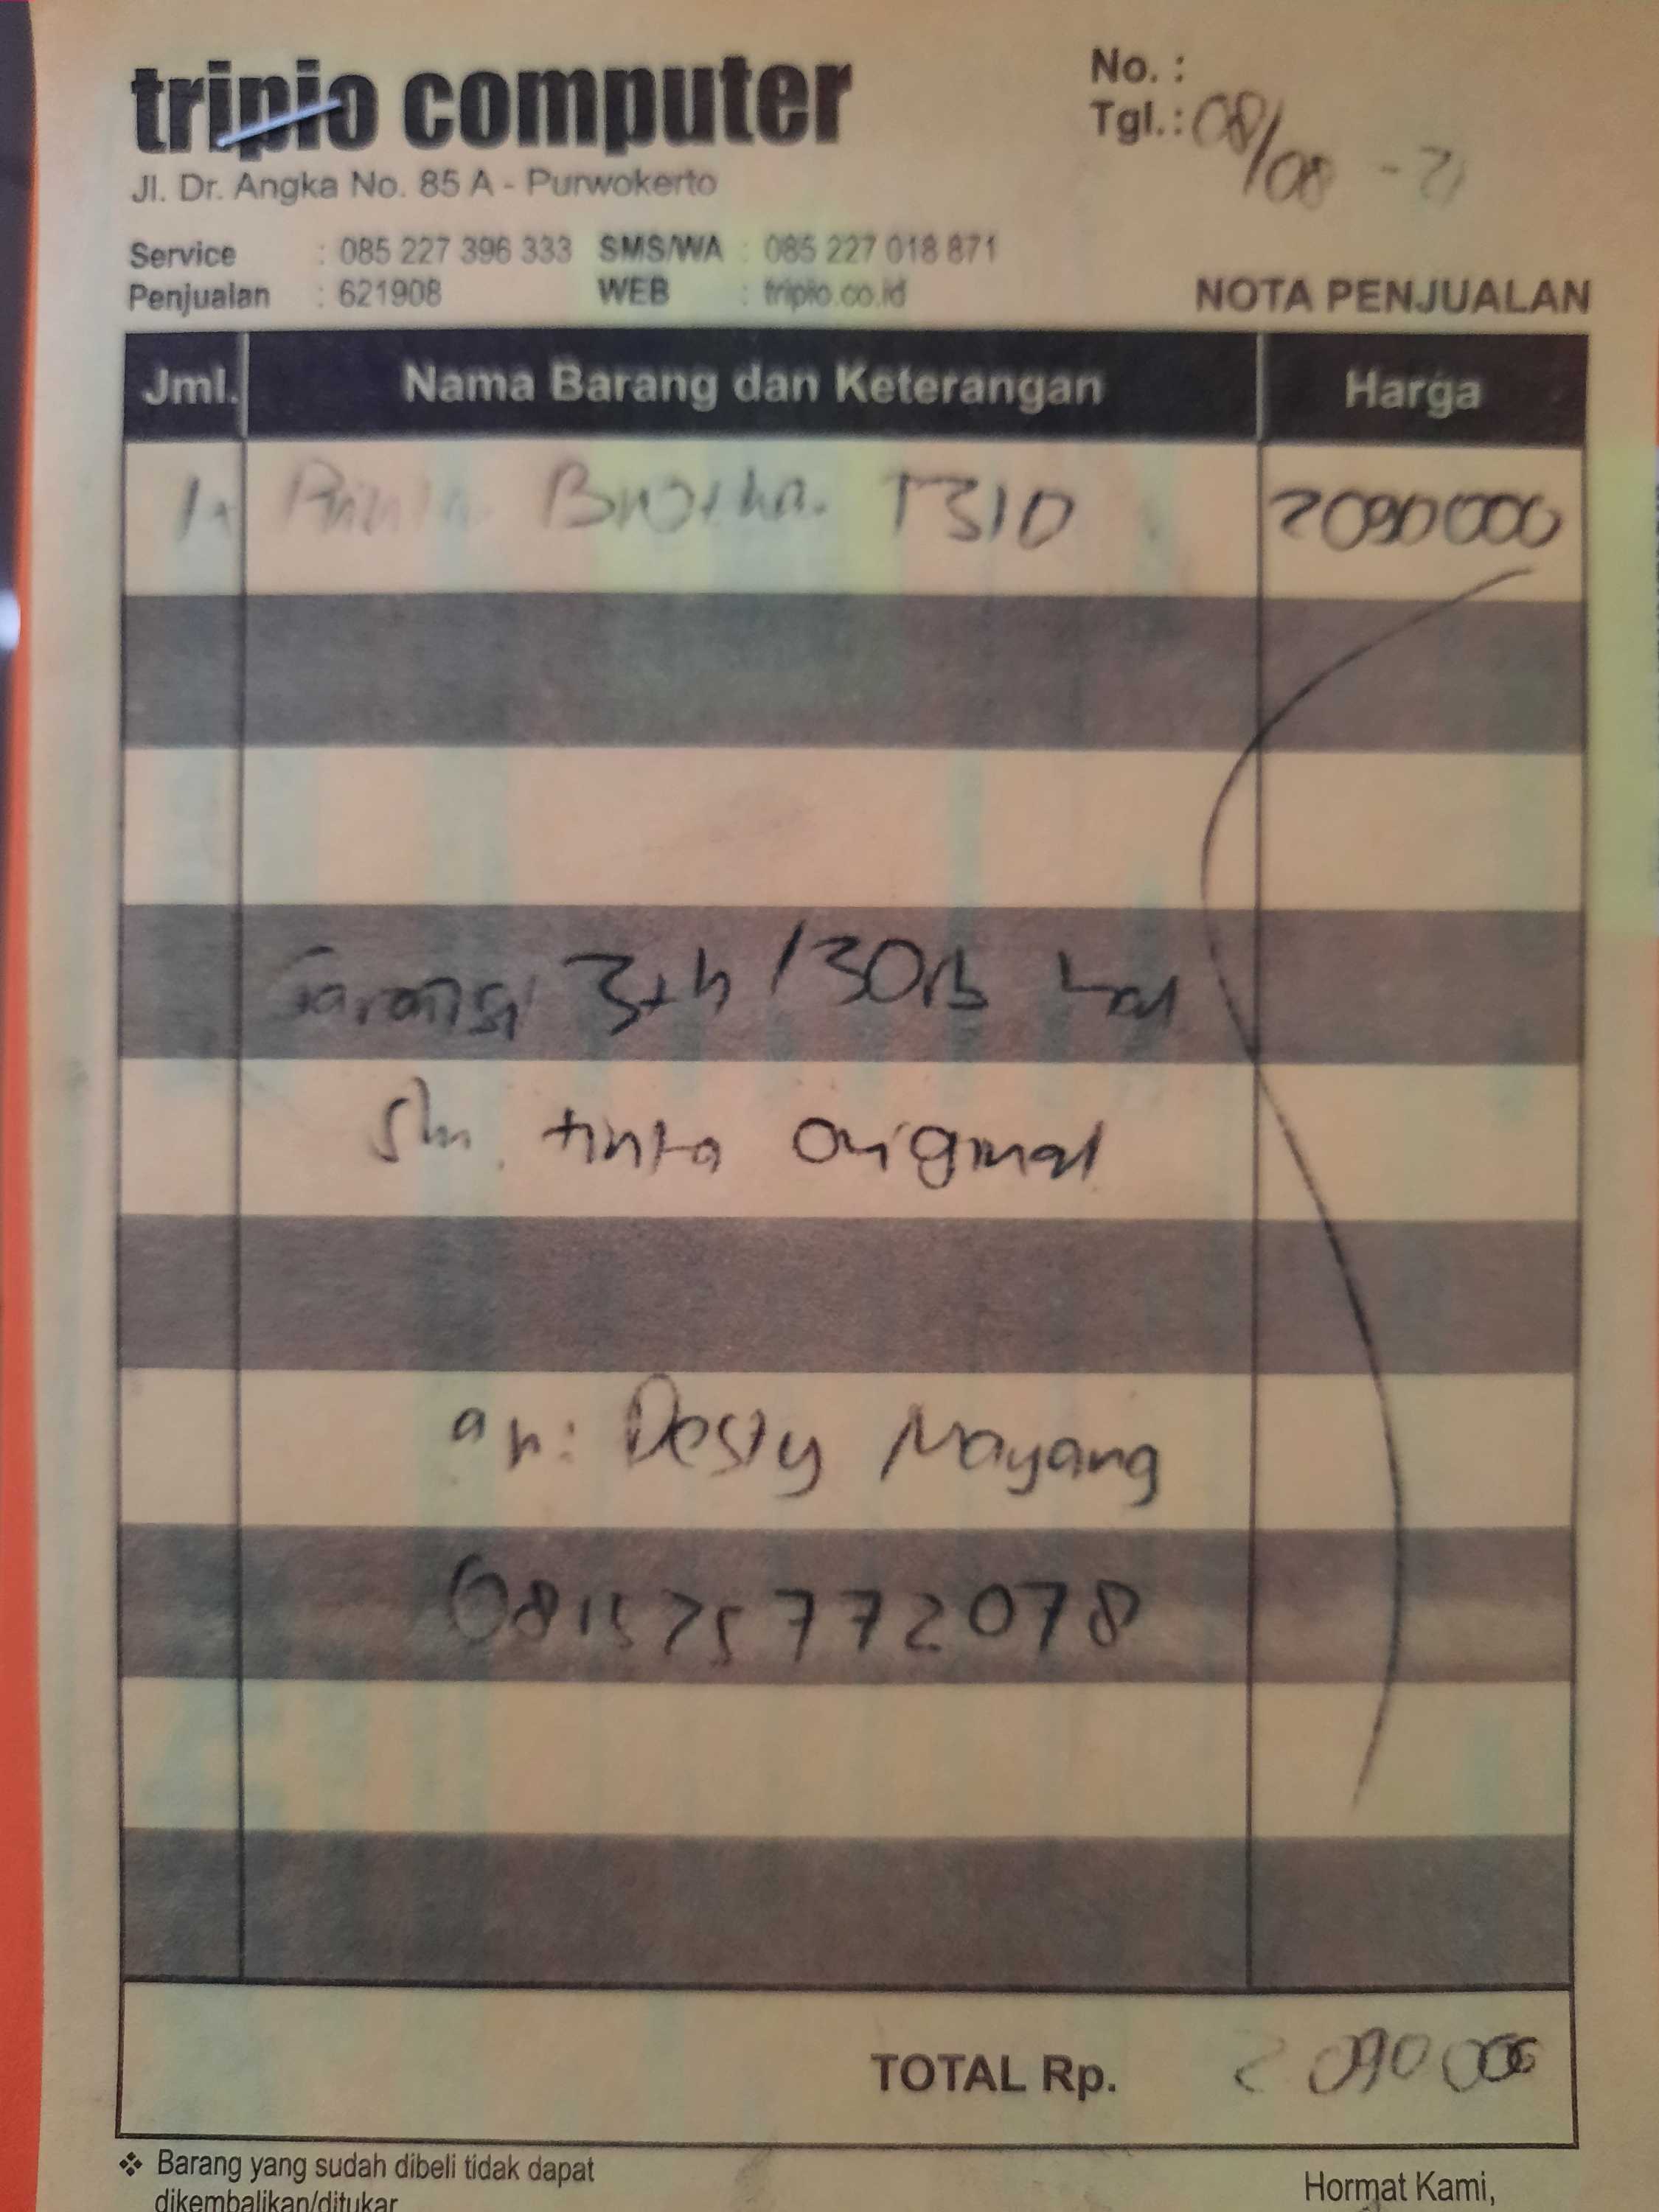 tripio computer
Jl. Dr. Angka No. 85 A - Purwokerto
Service : 085 227 396 333 SMS/WA : 085 227 018 871
Penjualan : 621908 WEB : tripio.co.id
No. :
Tgl.: 08/08 - 21
NOTA PENJUALAN
Jml. Nama Barang dan Keterangan Harga
1 Printer Brother T310 2090000
Garansi 3th /30rb hal
tinta original
an: Desty Mayang
081575772078
TOTAL Rp. 2090000
❖ Barang yang sudah dibeli tidak dapat
dikembalikan/ditukar
Hormat Kami,